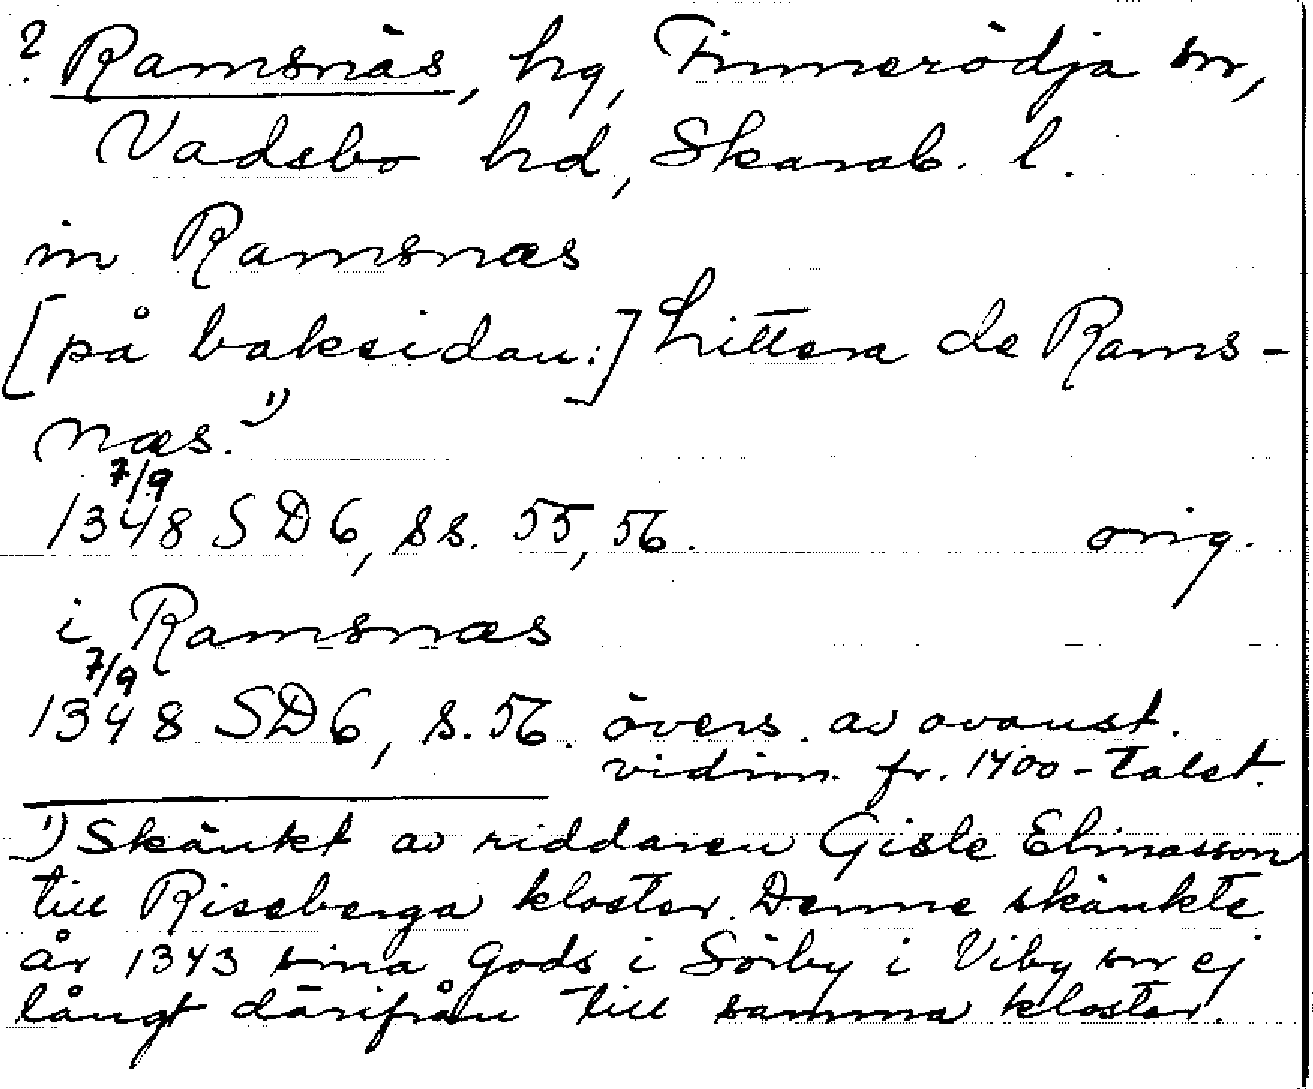 ? Ramsnäs, hg, Finnerödja sn,
Vadsbo hd, Skarab. l.
in Ramsnæs
[på baksidan:] Littera de Rams-
næs.¹)
7/9
1348 SD6, ss. 55, 56. orig.
i Ramsnæs
7/9
1348 SD6, s. 56. övers. av ovanst.
vidim. fr. 1400-talet.
¹) Skänkt av riddaren Gisle Elinasson
till Riseberga kloster. Denne skänkte
år 1343 sina gods i Sörby i Viby sn ej
långt därifrån till samma kloster.